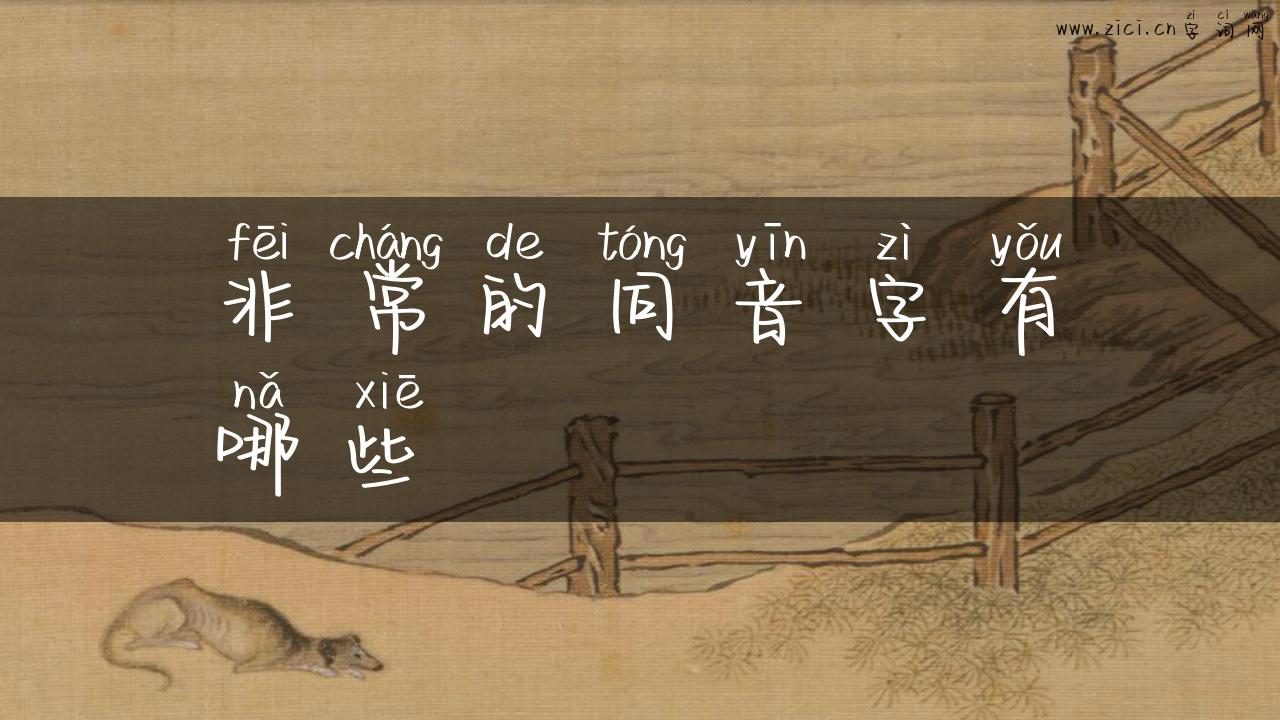 zì cí wǎng
www.zici.cn 字词网
fēi cháng de tóng yīn zì yǒu
非常的同音字有
nǎ xiē
哪些